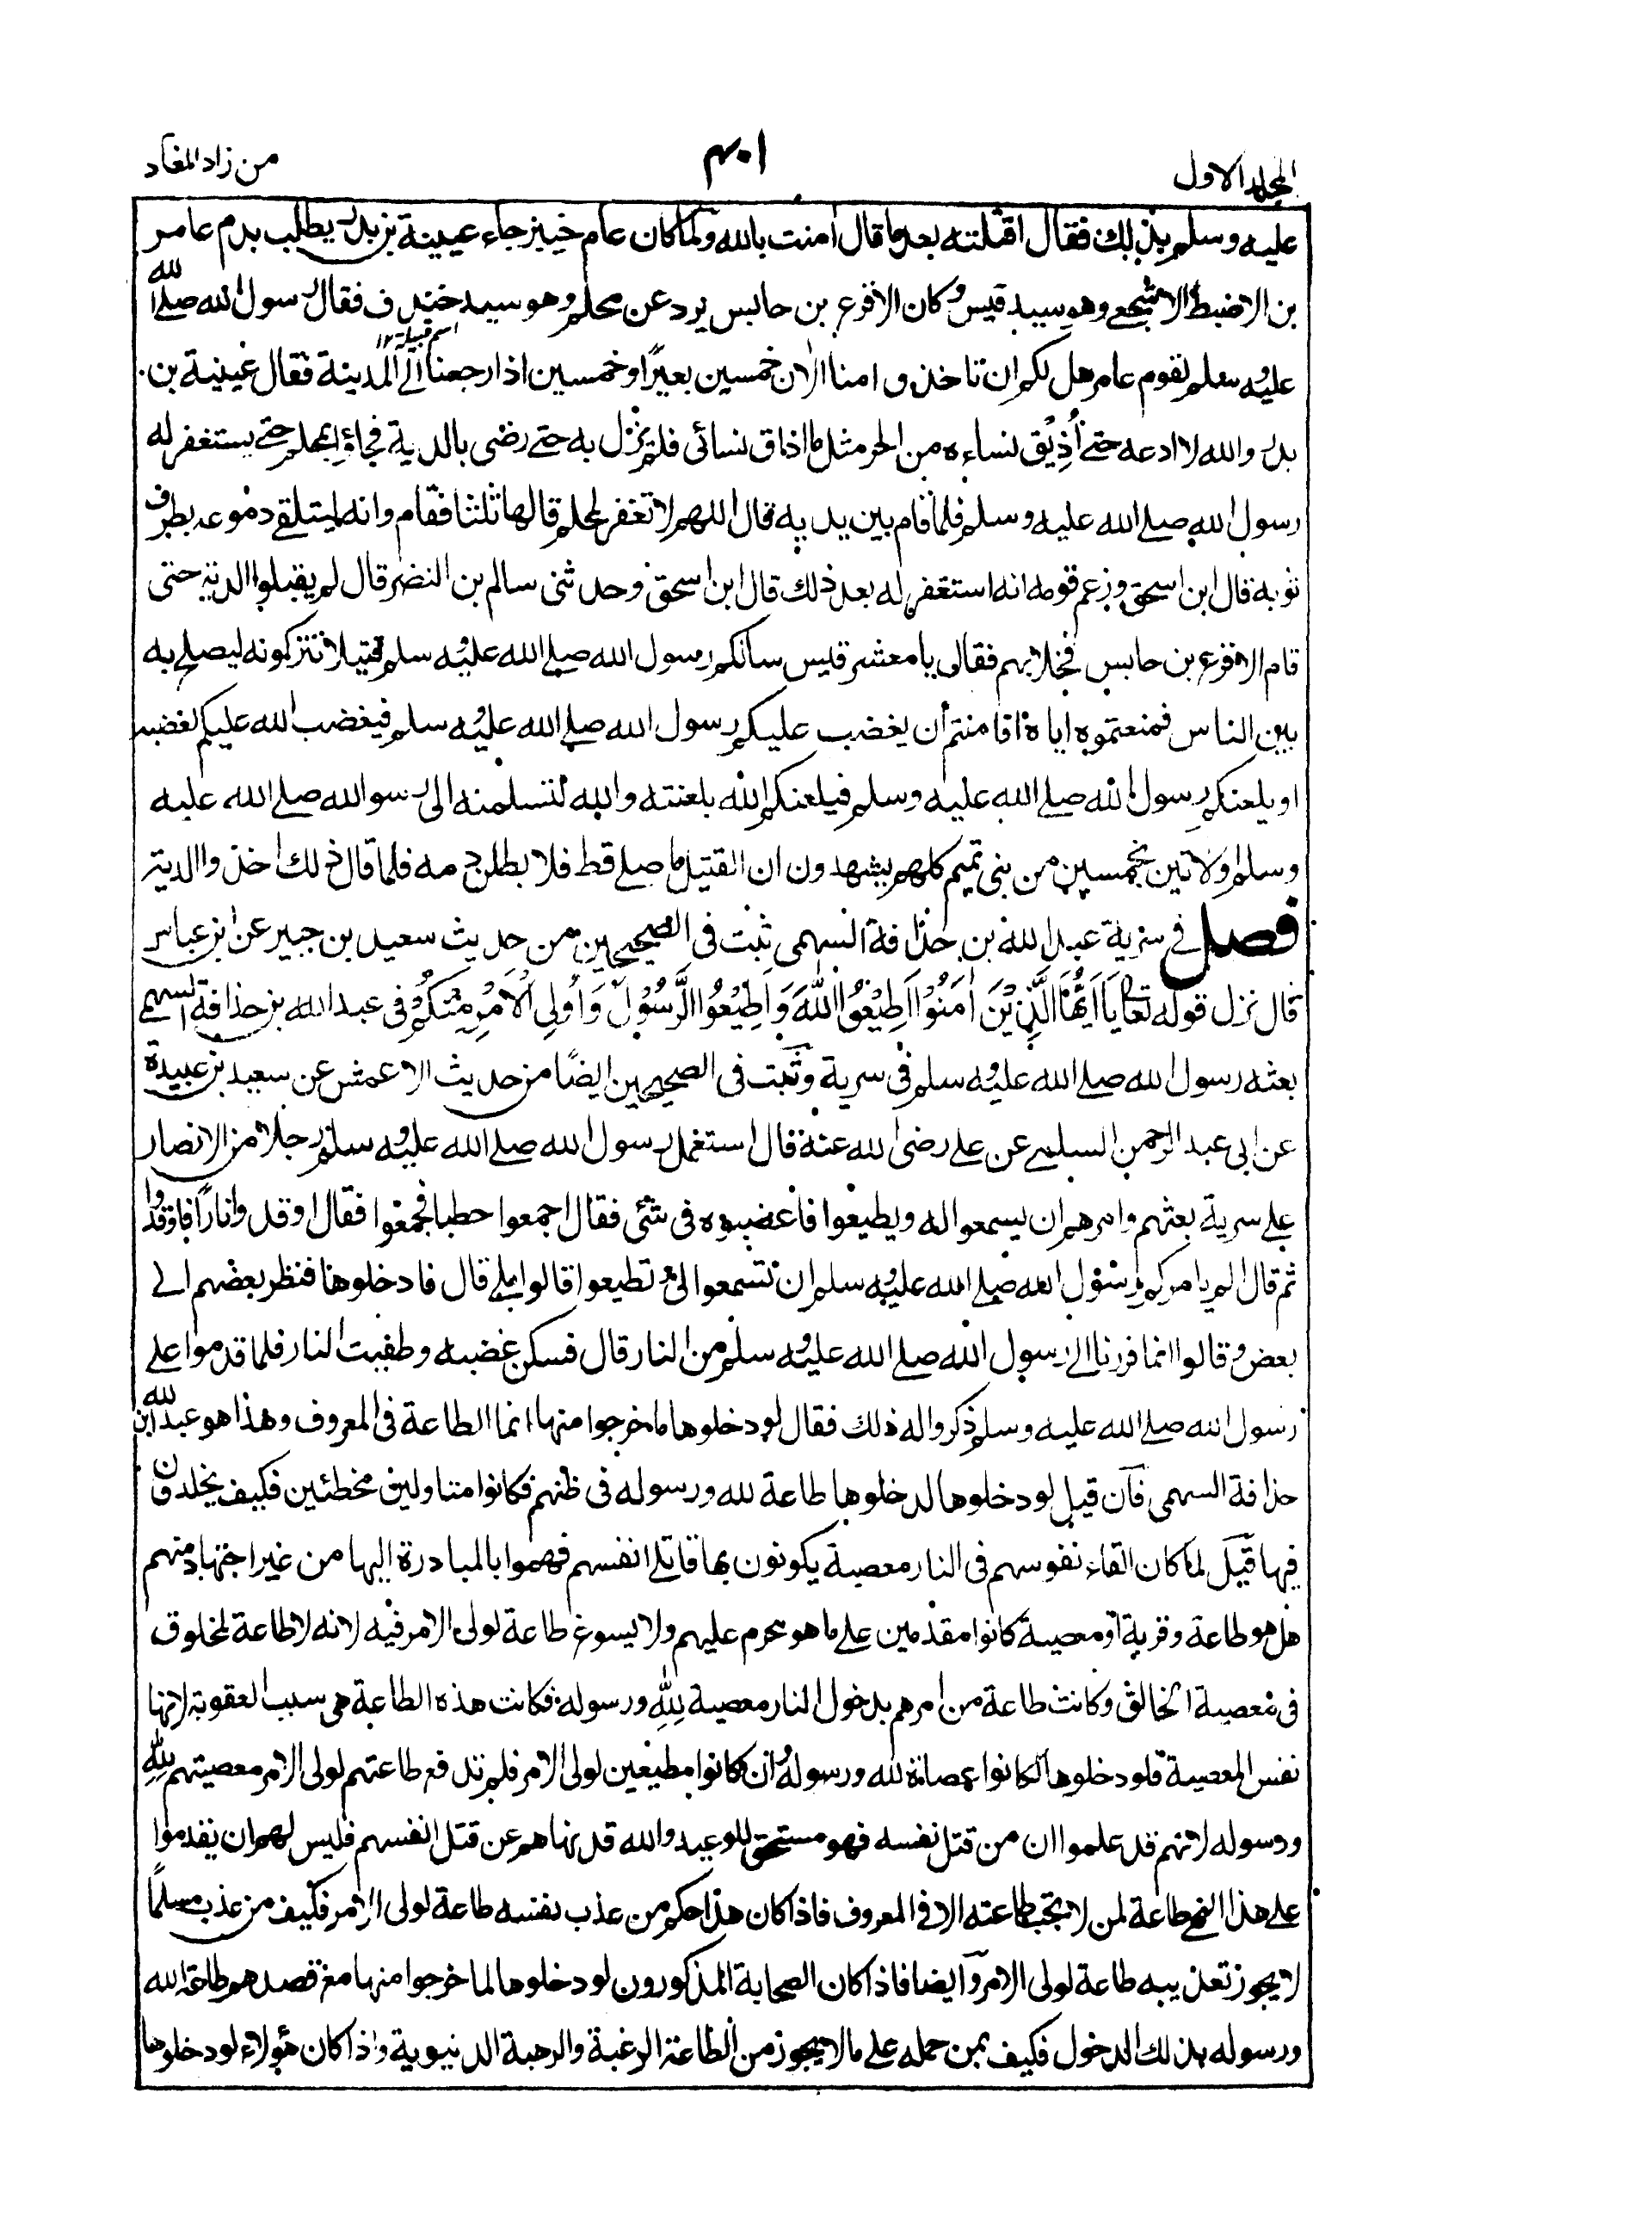 المجلد الاول
۴۰۱
من زاد المعاد
عليه وسلم بذلك فقال اقتلته بعد ما قال امنت بالله ولما كان عام خيبر جاء عيينة بن بدر يطلب بدم عامر
بن الاضبط الاشجعي وهو سيد قيس وكان الاقرع بن حابس يرد عن محلم وهو سيد خندف فقال رسول الله صلى الله
اسم قبيلة ١٢
عليه وسلم لقوم عامر هل لكم ان تاخذوا منا الان خمسين بعيرًا وخمسين اذا رجعنا الى المدينة فقال عيينة بن
بدر والله لا ادعه حتى أُذِيْق نساءه من الحر مثل ما اذاق نسائى فلم يزل به حتى رضى بالدية فجاؤا بمحلم حتى يستغفر له
رسول الله صلى الله عليه وسلم فلما قام بين يديه قال اللهم لا تغفر لمحلم قالها ثلثا فقام وانه ليتلقى دموعه بطرف
ثوبه قال ابن اسحق وزعم قومه انه استغفر له بعد ذلك قال ابن اسحق وحدثنى سالم بن النضر قال لم يقبلوا الدية حتى
قام الاقرع بن حابس فخلا بهم فقال يا معشر قيس سالكم رسول الله صلى الله عليه وسلم قتيلا تتركونه ليصلح به
بين الناس فمنعتموه اياه افامنتم أن يغضب عليكم رسول الله صلى الله عليه وسلم فيغضب الله عليكم لغضبه
او يلعنكم رسول الله صلى الله عليه وسلم فيلعنكم الله بلعنته والله لتسلمنه الى رسو الله صلى الله عليه
وسلم اولاتين بخمسين من بنى تميم كلهم يشهدون ان القتيل ما صلى قط فلا بطلن دمه فلما قال ذلك اخذوا الدية
فصل في سرية عبد الله بن حذافة السهمى ثبت فى الصحيحين من حديث سعيد بن جبير عن ابن عباس
قال نزل قوله تعالى يَا اَيُّهَا الَّذِيْنَ اٰمَنُوْا اَطِيْعُوا اللّٰهَ وَاَطِيْعُوا الرَّسُوْلَ وَاُولِى الْاَمْرِ مِنْكُمْ فى عبد الله بن حذافة السهمي
بعثه رسول الله صلى الله عليه وسلم فى سرية وثبت فى الصحيحين ايضًا من حديث الاعمش عن سعيد بن عبيدة
عن ابى عبد الرحمن السلمي عن على رضى الله عنه قال استعمل رسول الله صلى الله عليه وسلم رجلا من الانصار
على سرية بعثهم وامرهم ان يسمعوا له ويطيعوا فاغضبوه فى شئى فقال اجمعوا حطبا فجمعوا فقال اوقدوا نارًا فاوقدوا
ثم قال الم يامركم رسول الله صلى الله عليه وسلم ان تسمعوا لى وتطيعوا قالوا بلى قال فادخلوها فنظر بعضهم الى
بعض وقالوا انما فررنا الى رسول الله صلى الله عليه وسلم من النار قال فسكن غضبه وطفيت النار فلما قدموا على
رسول الله صلى الله عليه وسلم ذكروا له ذلك فقال لو دخلوها ما خرجوا منها انما الطاعة فى المعروف وهذا هو عبد الله ابن
حذافة السهمى فآن قيل لو دخلوها لدخلوها طاعة لله ورسوله فى ظنهم فكانوا متاولين مخطئين فكيف يخلدون
فيها قيل لما كان القاء نفوسهم فى النار معصية يكونون بها قاتلى انفسهم فهموا بالمبادرة اليها من غير اجتهاد منهم
هل هو طاعة وقربة او معصية كانوا مقدمين على ما هو محرم عليهم ولا يسوغ طاعة لولى الامر فيه لانه لا طاعة لمخلوق
فى معصية الخالق وكانت طاعة من امرهم بدخول النار معصية لِلّٰهِ ورسوله فكانت هذه الطاعة هى سبب العقوبة لانها
نفس المعصية فلو دخلوها لكانوا عصاة لله ورسوله وان كانوا مطيعين لولى الامر فلم تدفع طاعتهم لولى الامر معصيتهم لِلّٰهِ
ورسوله لانهم قد علموا ان من قتل نفسه فهو مستحق للوعيد والله قد نهاهم عن قتل انفسهم فليس لهم ان يقدموا
على هذا النهى طاعة لمن لا تجب طاعته الا فى المعروف فاذا كان هذا حكم من عذب نفسه طاعة لولى الامر فكيف من عذب مسلمًا
لا يجوز تعذيبه طاعة لولى الامر وآيضا فاذا كان الصحابة المذكورون لو دخلوها لما خرجوا منها مع قصدهم طاعة الله
ورسوله بذلك الدخول فكيف بمن حمله على مالا يجوز من الطاعة الرغبة والرهبة الدنيوية واذا كان هؤلاء لو دخلوها